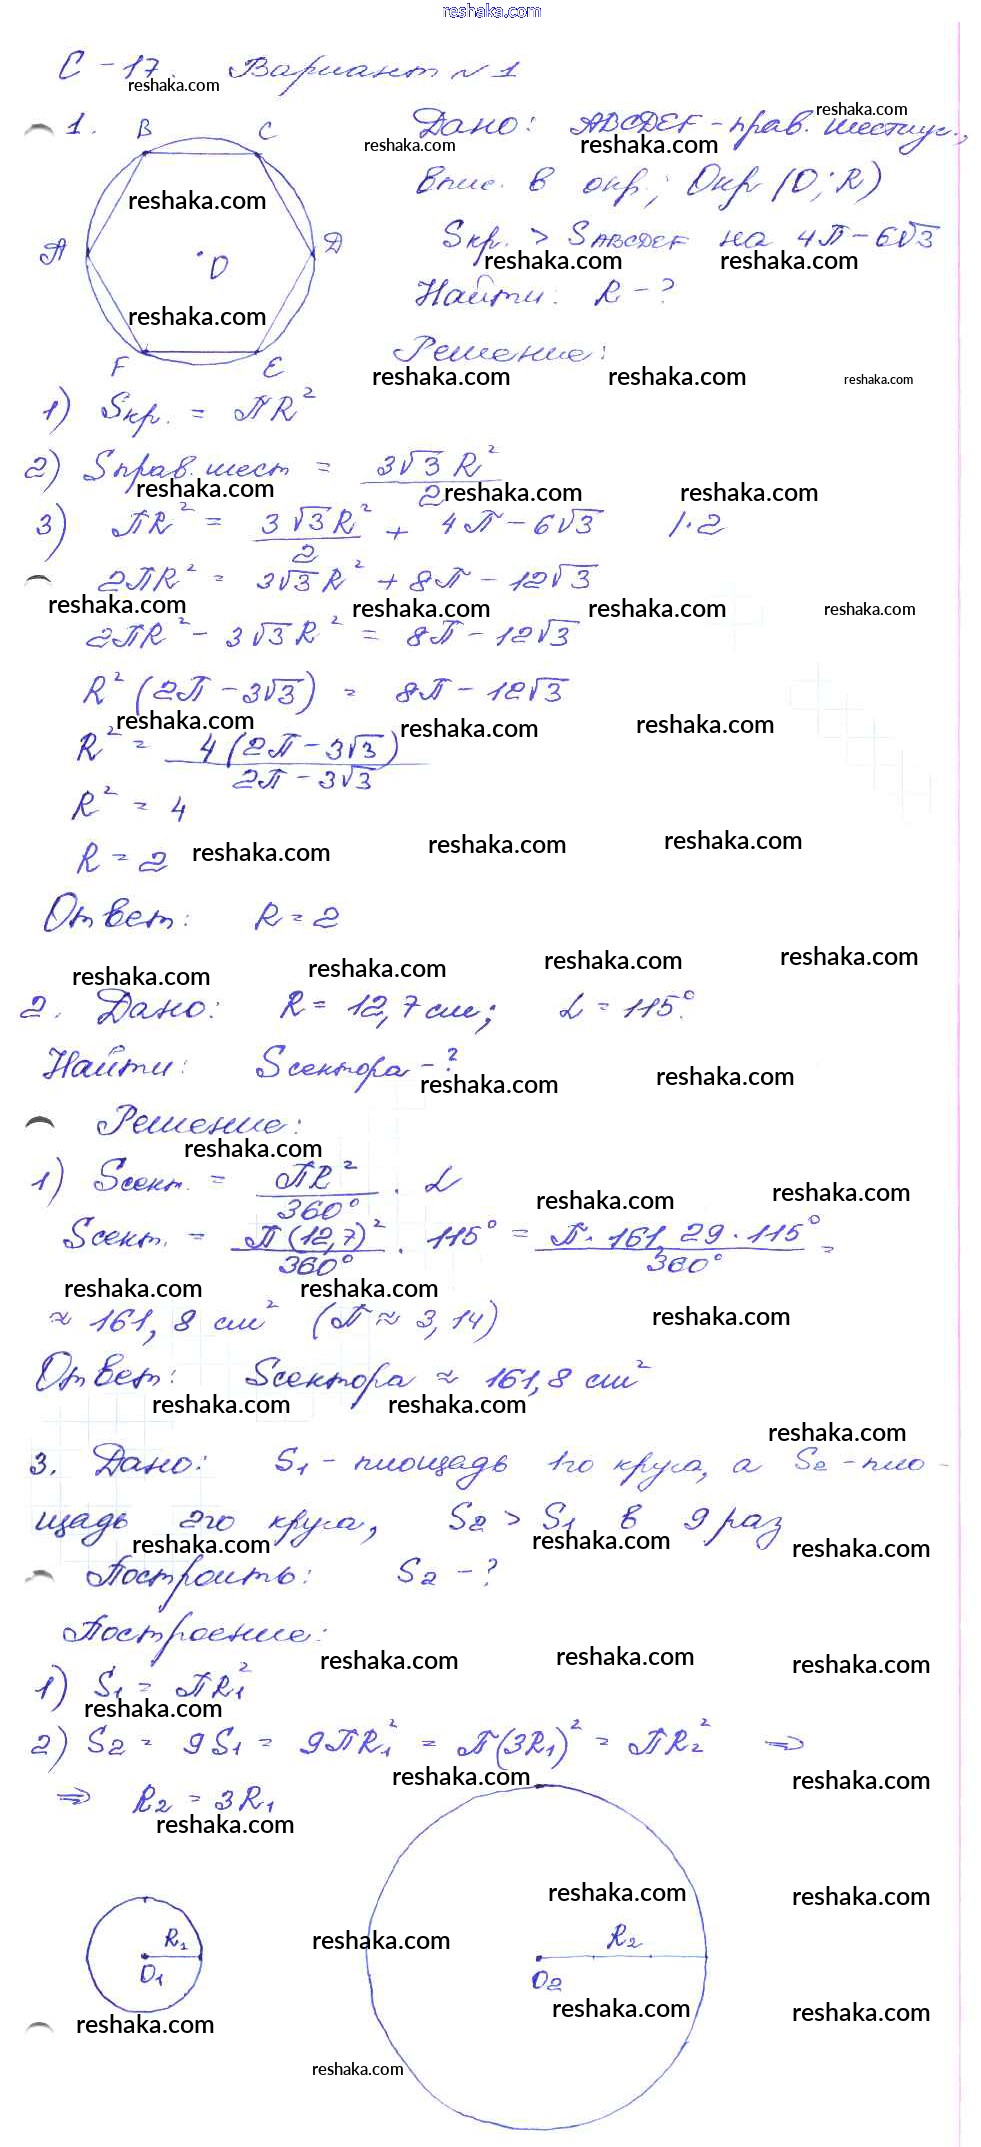 reshaka.com
С-17. Вариант №1
1.
B
C
A
D
O
F
E
Дано: ABCDEF - прав. шестиуг.,
впис. в окр.; Окр (O; R)
Sкр. > SABCDEF на 4π - 6√3
Найти: R - ?
Решение:
1) Sкр. = πR²
2) Sправ. шест = 3√3 R² / 2
3) πR² = 3√3 R² / 2 + 4π - 6√3 | · 2
2πR² = 3√3 R² + 8π - 12√3
2πR² - 3√3 R² = 8π - 12√3
R² (2π - 3√3) = 8π - 12√3
R² = 4 (2π - 3√3) / 2π - 3√3
R² = 4
R = 2
Ответ: R = 2
2. Дано: R = 12,7 см; α = 115°.
Найти: Sсектора - ?
Решение:
1) Sсект. = πR² / 360° · α
Sсект. = π(12,7)² / 360° · 115° = π · 161,29 · 115° / 360° =
≈ 161,8 см² (π ≈ 3,14)
Ответ: Sсектора ≈ 161,8 см²
3. Дано: S₁ - площадь 1го круга, а S₂ - пло-
щадь 2го круга, S₂ > S₁ в 9 раз
Построить: S₂ - ?
Построение:
1) S₁ = πR₁²
2) S₂ = 9S₁ = 9πR₁² = π(3R₁)² = πR₂² ⇒
⇒ R₂ = 3R₁
R₁
O₁
R₂
O₂